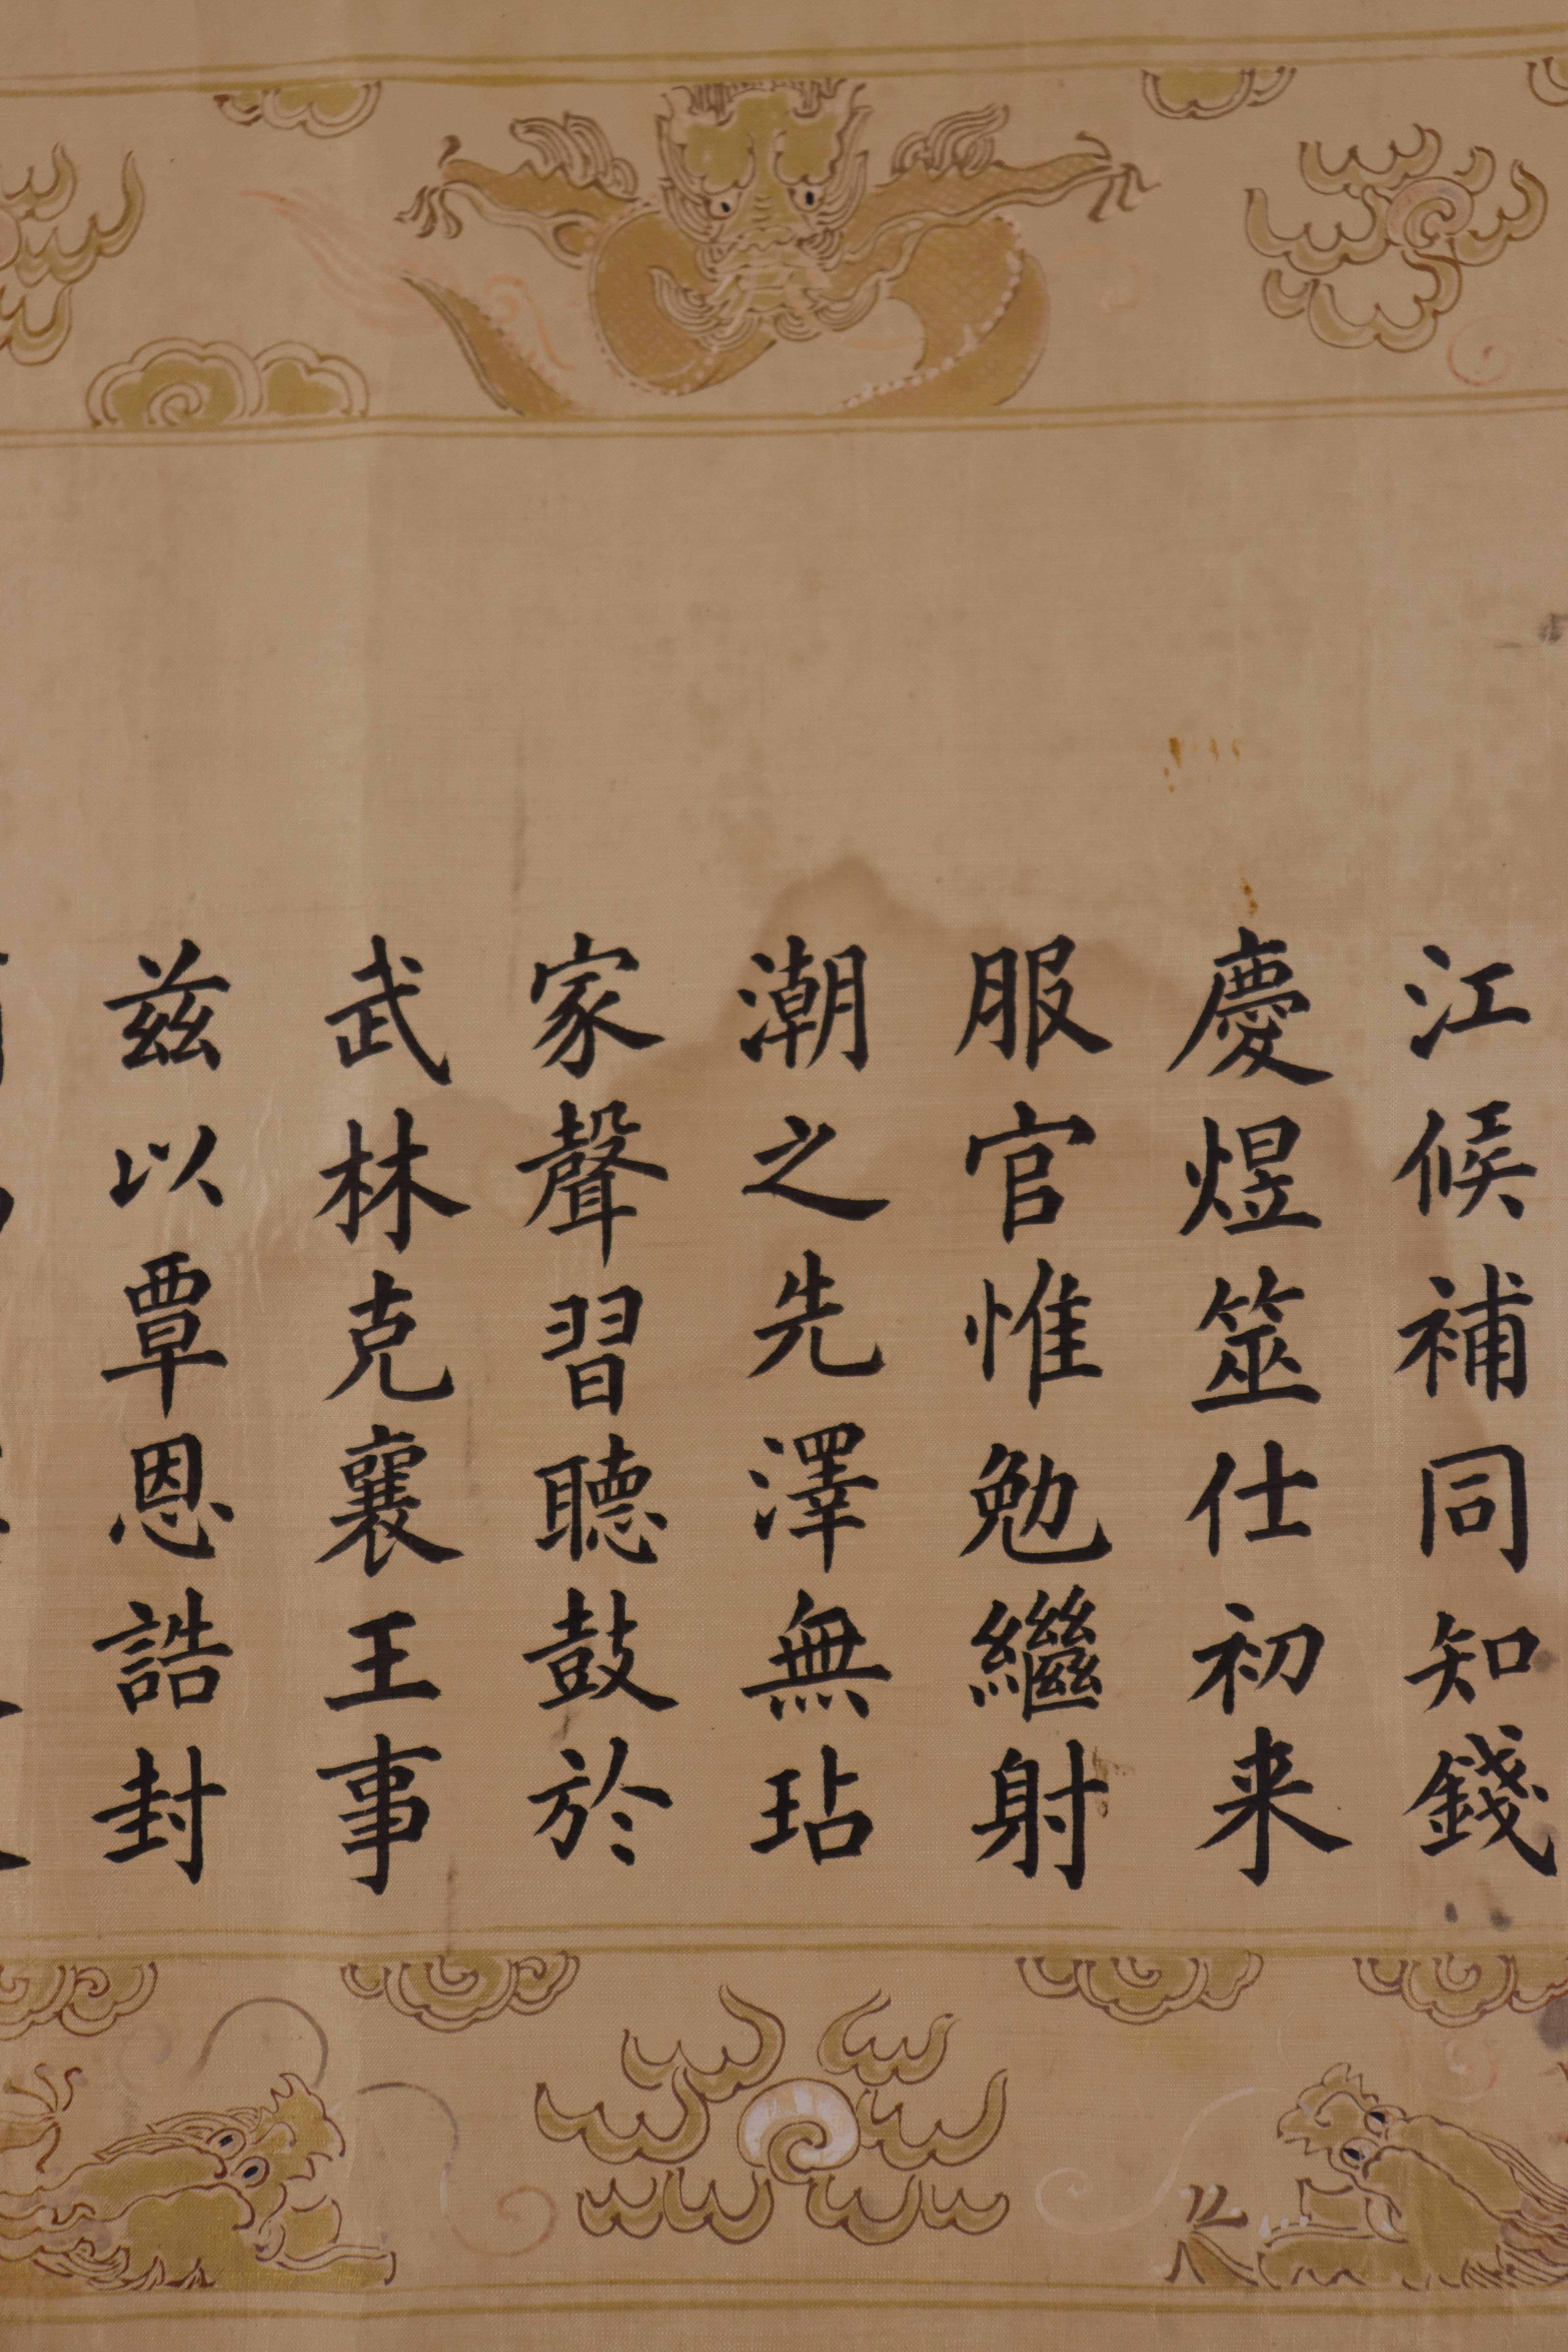 江候補同知錢
慶煜筮仕初来
服官惟勉繼射
潮之先澤無玷
家聲習聽鼓於
武林克襄王事
茲以覃恩誥封